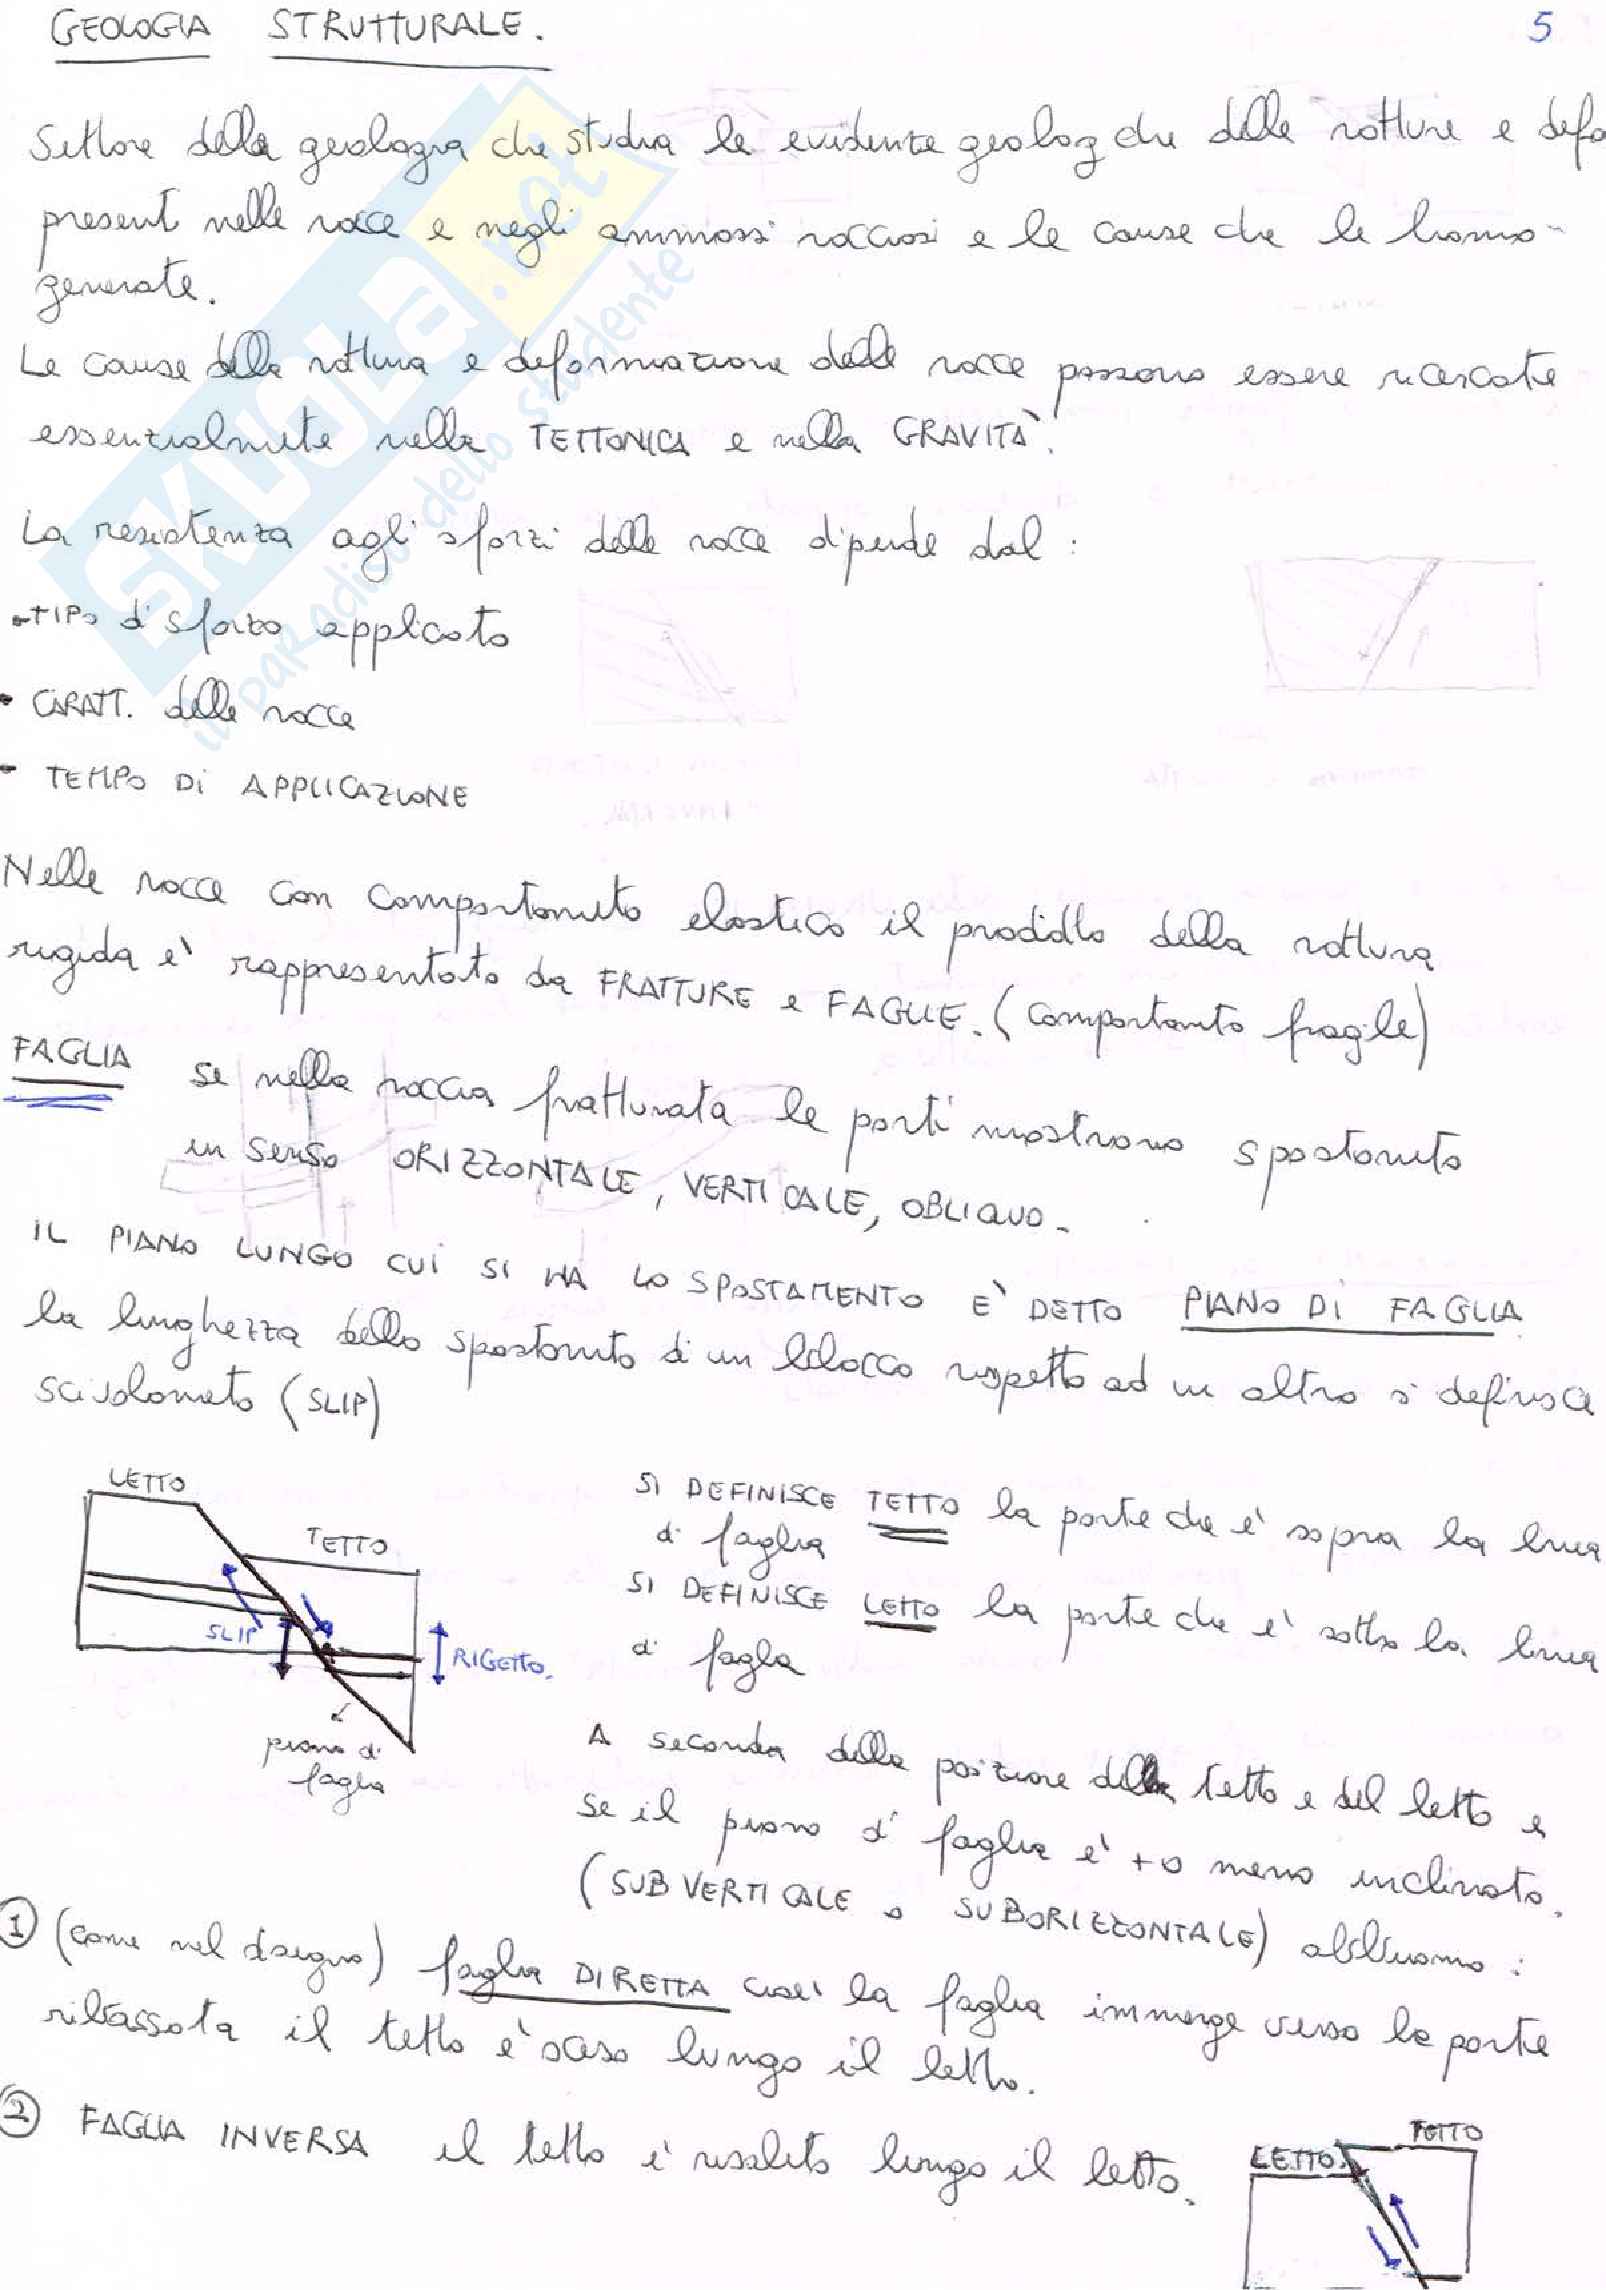 GEOLOGIA STRUTTURALE.
5
Settore della geologia che studia le evidenze geologiche delle rotture e defo
presenti nelle rocce e negli ammassi rocciosi e le cause che le hanno
generate.
Le cause della rottura e deformazione delle rocce possono essere ricercate
essenzialmnete nella TETTONICA e nella GRAVITÀ.
La resistenza agli sforzi delle rocce dipende dal :
• TIPO di sforzo applicato
• CARATT. delle rocce
• TEMPO DI APPLICAZIONE
Nelle rocce con comportamento elastico il prodotto della rottura
rigida è rappresentato da FRATTURE e FAGLIE. (comportamento fragile)
FAGLIA se nella roccia fratturata le parti mostrano spostamento
in senso ORIZZONTALE, VERTICALE, OBLIQUO.
IL PIANO LUNGO CUI SI HA LO SPOSTAMENTO E' DETTO PIANO DI FAGLIA
la lunghezza dello spostamento di un blocco rispetto ad un altro si definisce
scivolamento (SLIP)
LETTO
TETTO
SLIP
RIGETTO.
piano di
faglia
SI DEFINISCE TETTO la parte che e' sopra la linea
di faglia
SI DEFINISCE LETTO la parte che e' sotto la linea
di faglia
A seconda della posizione del tetto e del letto e
se il piano di faglia e' + o meno inclinato.
(SUB VERTICALE o SUBORIZZONTALE) abbiamo :
1 (come nel disegno) faglia DIRETTA cioe' la faglia immerge verso la parte
ribassata il tetto e' sceso lungo il letto.
2 FAGLIA INVERSA il tetto e' risalito lungo il letto.
TETTO
LETTO
SKUOLA.net
il paradiso dello studente